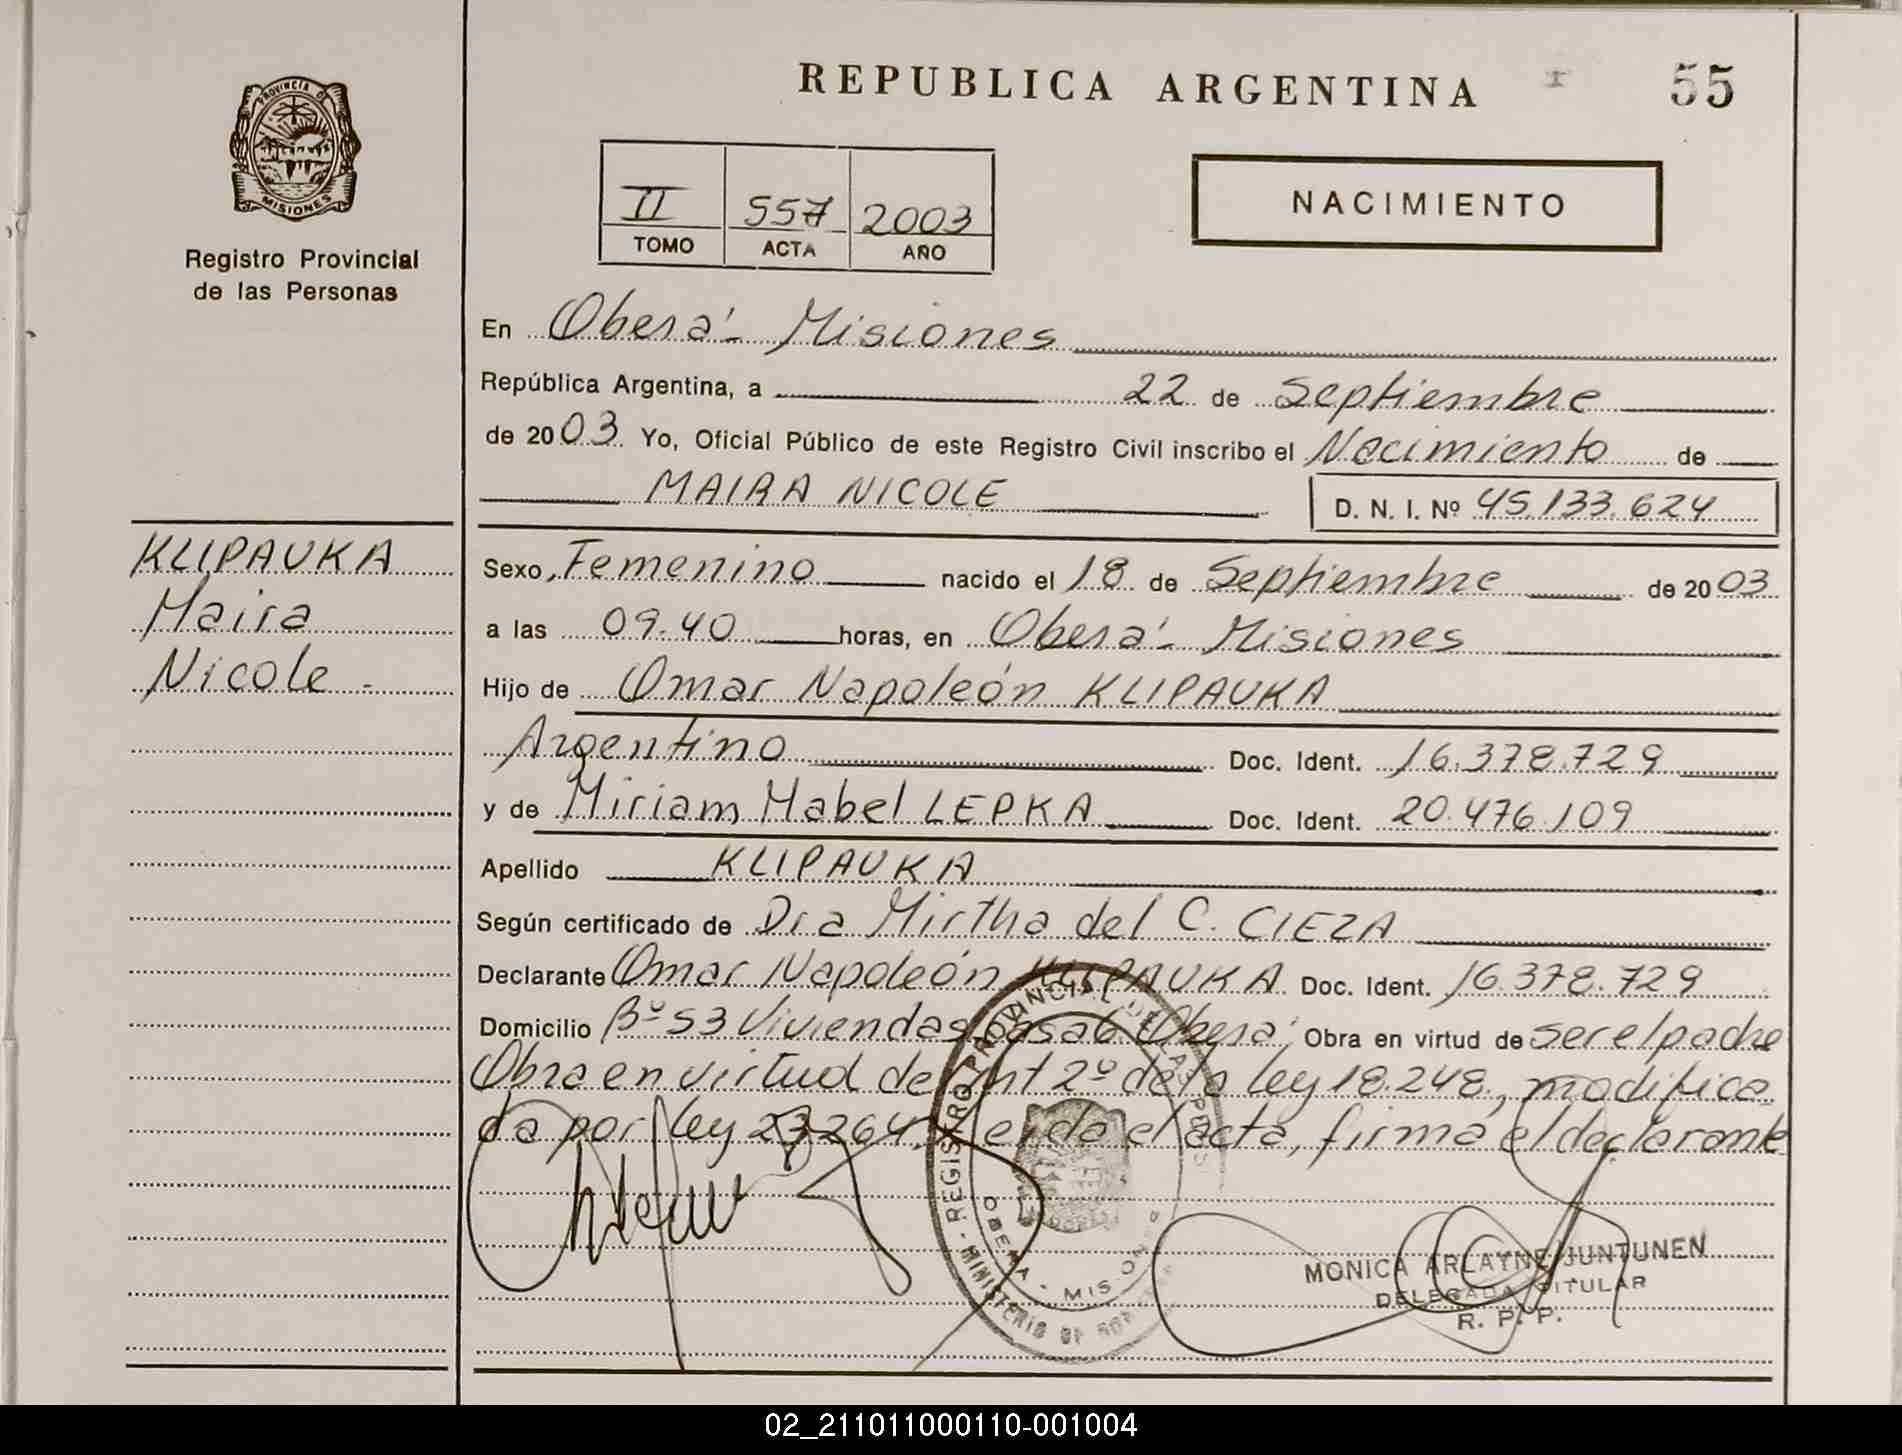 REPUBLICA ARGENTINA
55
PROVINCIA DE
MISIONES
Registro Provincial
de las Personas
II 557 2003
TOMO ACTA AÑO
NACIMIENTO
En Oberá - Misiones
República Argentina, a 22 de Septiembre
de 2003 Yo, Oficial Público de este Registro Civil inscribo el Nacimiento de
MAIRA NICOLE
D. N. I. Nº 45.133.624
KLIPAUKA
Maira
Nicole -
Sexo, Femenino nacido el 18 de Septiembre de 2003
a las 09.40 horas, en Oberá - Misiones
Hijo de Omar Napoleón KLIPAUKA
Argentino Doc. Ident. 16.378.729
y de Miriam Mabel LEPKA Doc. Ident. 20.476.109
Apellido KLIPAUKA
Según certificado de Dra Mirtha del C. CIEZA
Declarante Omar Napoleón KLIPAUKA Doc. Ident. 16.378.729
Domicilio Bº 53 Viviendas casa 6 Oberá Obra en virtud de ser el padre
Obra en virtud del Art 2º de la ley 18.248, modifica
da por ley 23264. Leida el acta, firma el declarante
REGISTRO PROVINCIAL DE LAS PERS
OBERA - MIS
MINISTERIO DE
MONICA ARLAYNE JUNTUNEN
DELEGADA TITULAR
R. P. P.
02_211011000110-001004